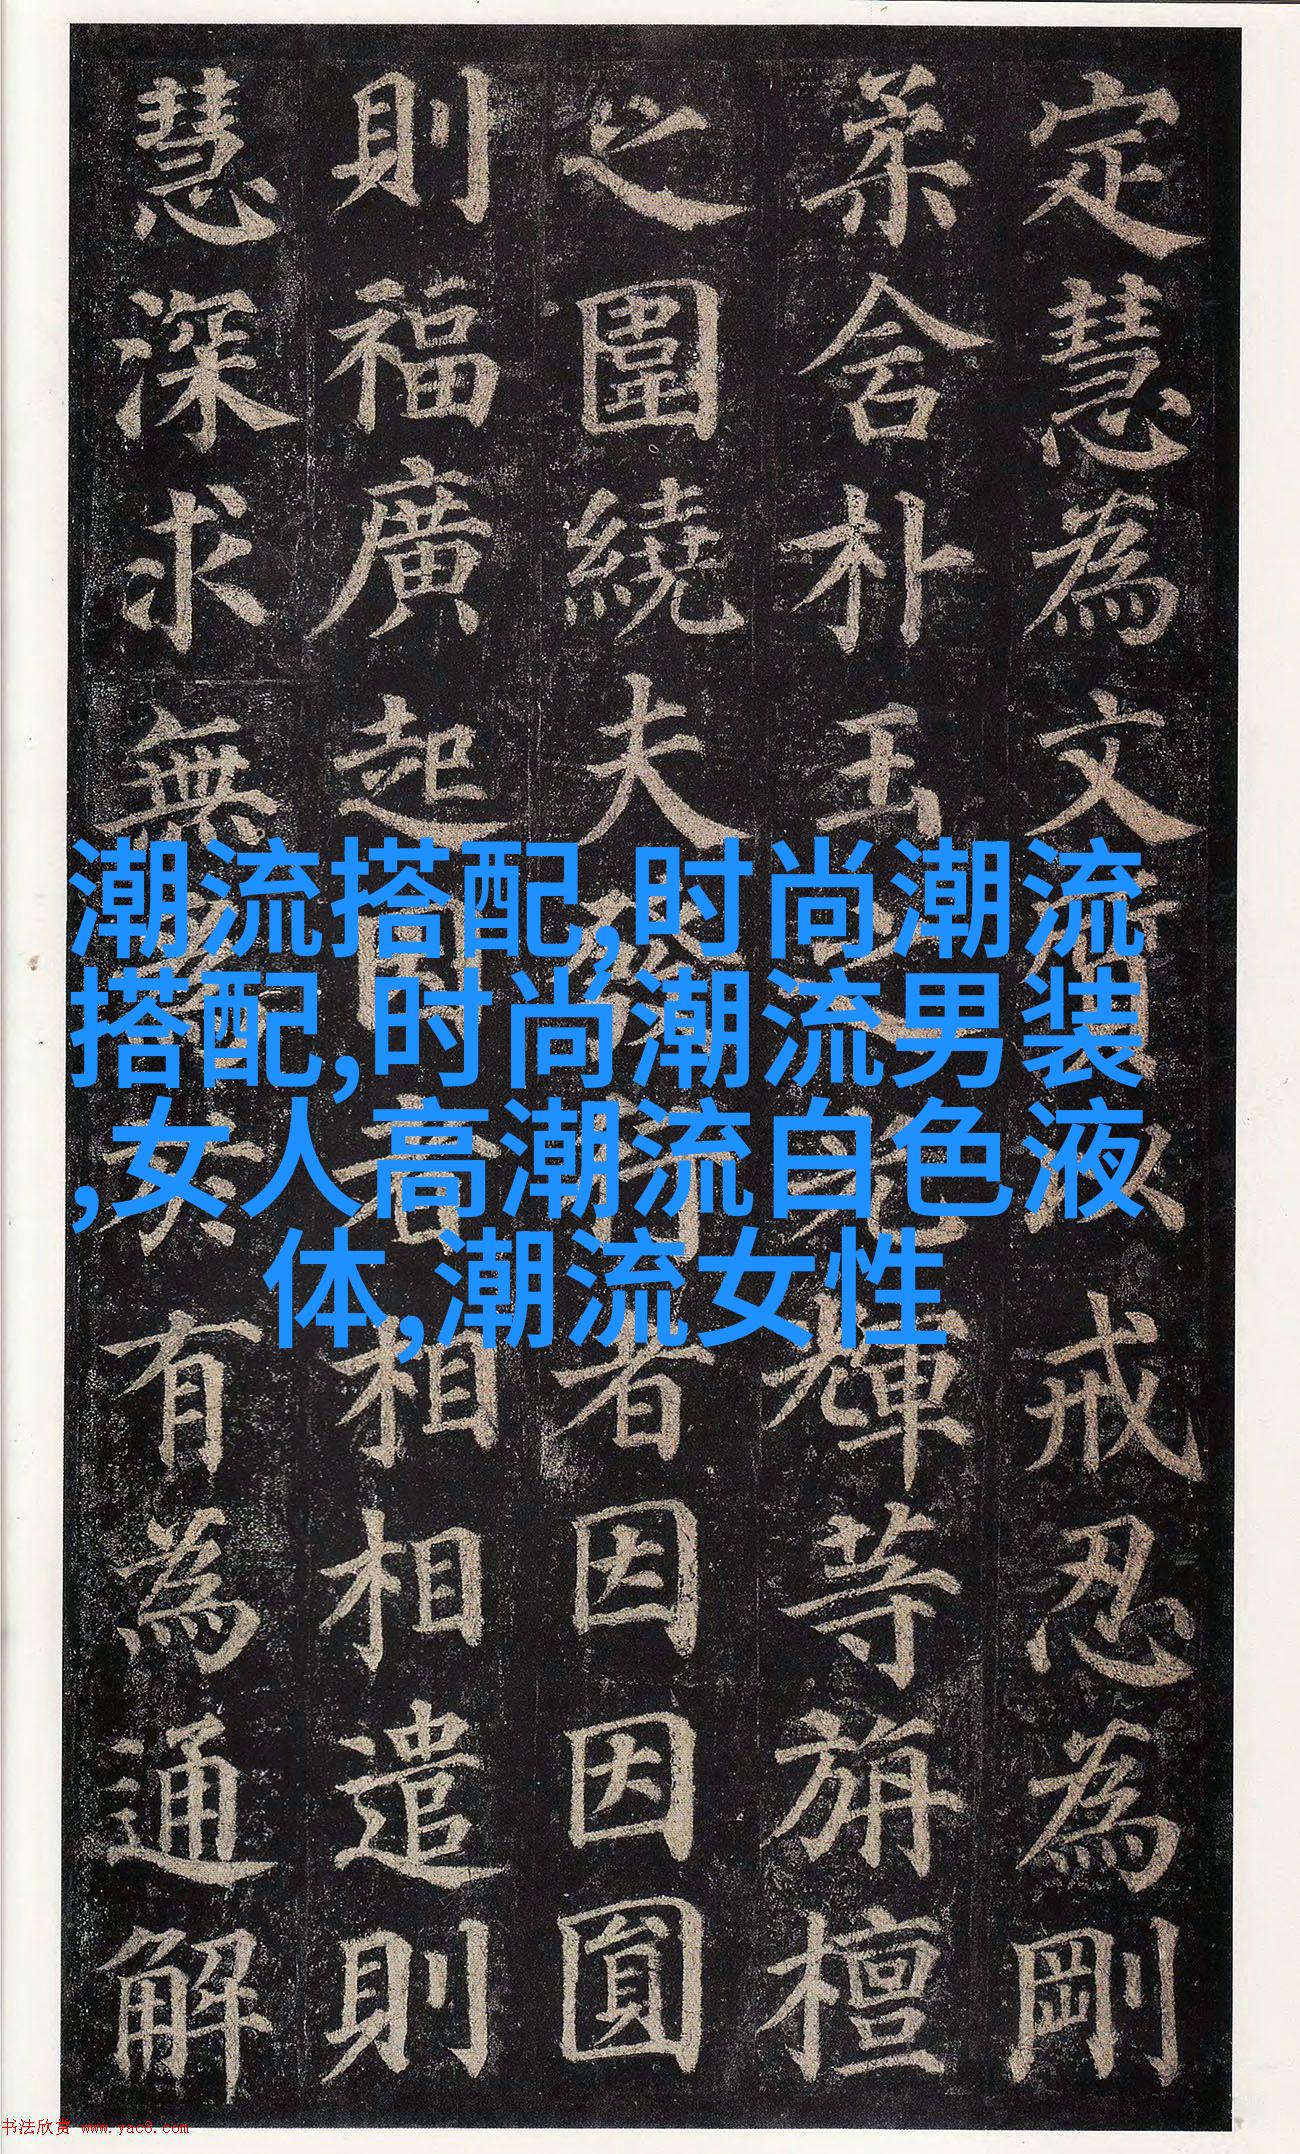 定慧為文質以戒忍為剛
柔含朴玉之光輝等旃檀
之圍繞夫發行者因因圓
則福廣起因者相相遣則
慧深求無有為通解
潮流搭配,时尚潮流
搭配,时尚潮流男装
,女人高潮流白色液
体,潮流女性
书法欣赏 www.yac8.com